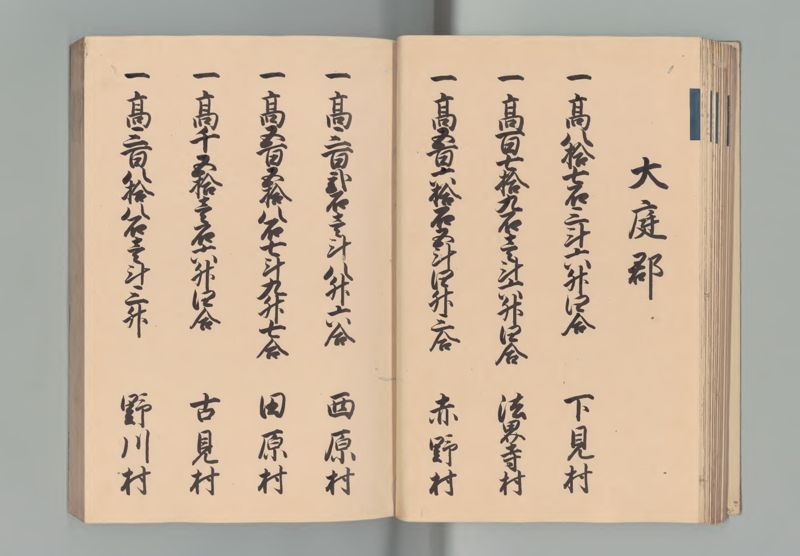 大庭郡
一高八拾七石三斗六升四合 下見村
一高百七拾九石壱斗六升四合 法界寺村
一高五百六拾石五斗四升三合 赤野村
一高三百弐石壱斗八升六合 西原村
一高五百五拾八石七斗九升七合 田原村
一高千五拾壱石六升四合 古見村
一高三百八拾八石壱斗三升 野川村